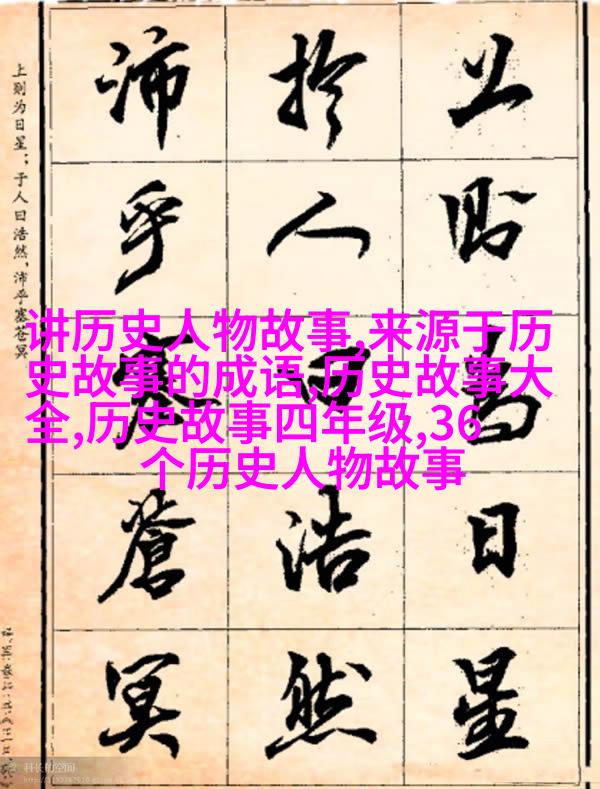 上則為日星
於人曰浩然
沛乎塞蒼冥
上则为日星；于人曰浩然，沛乎塞苍冥
讲历史人物故事,来源于历
史故事的成语,历史故事大
全,历史故事四年级,36
个历史人物故事
科长的空间